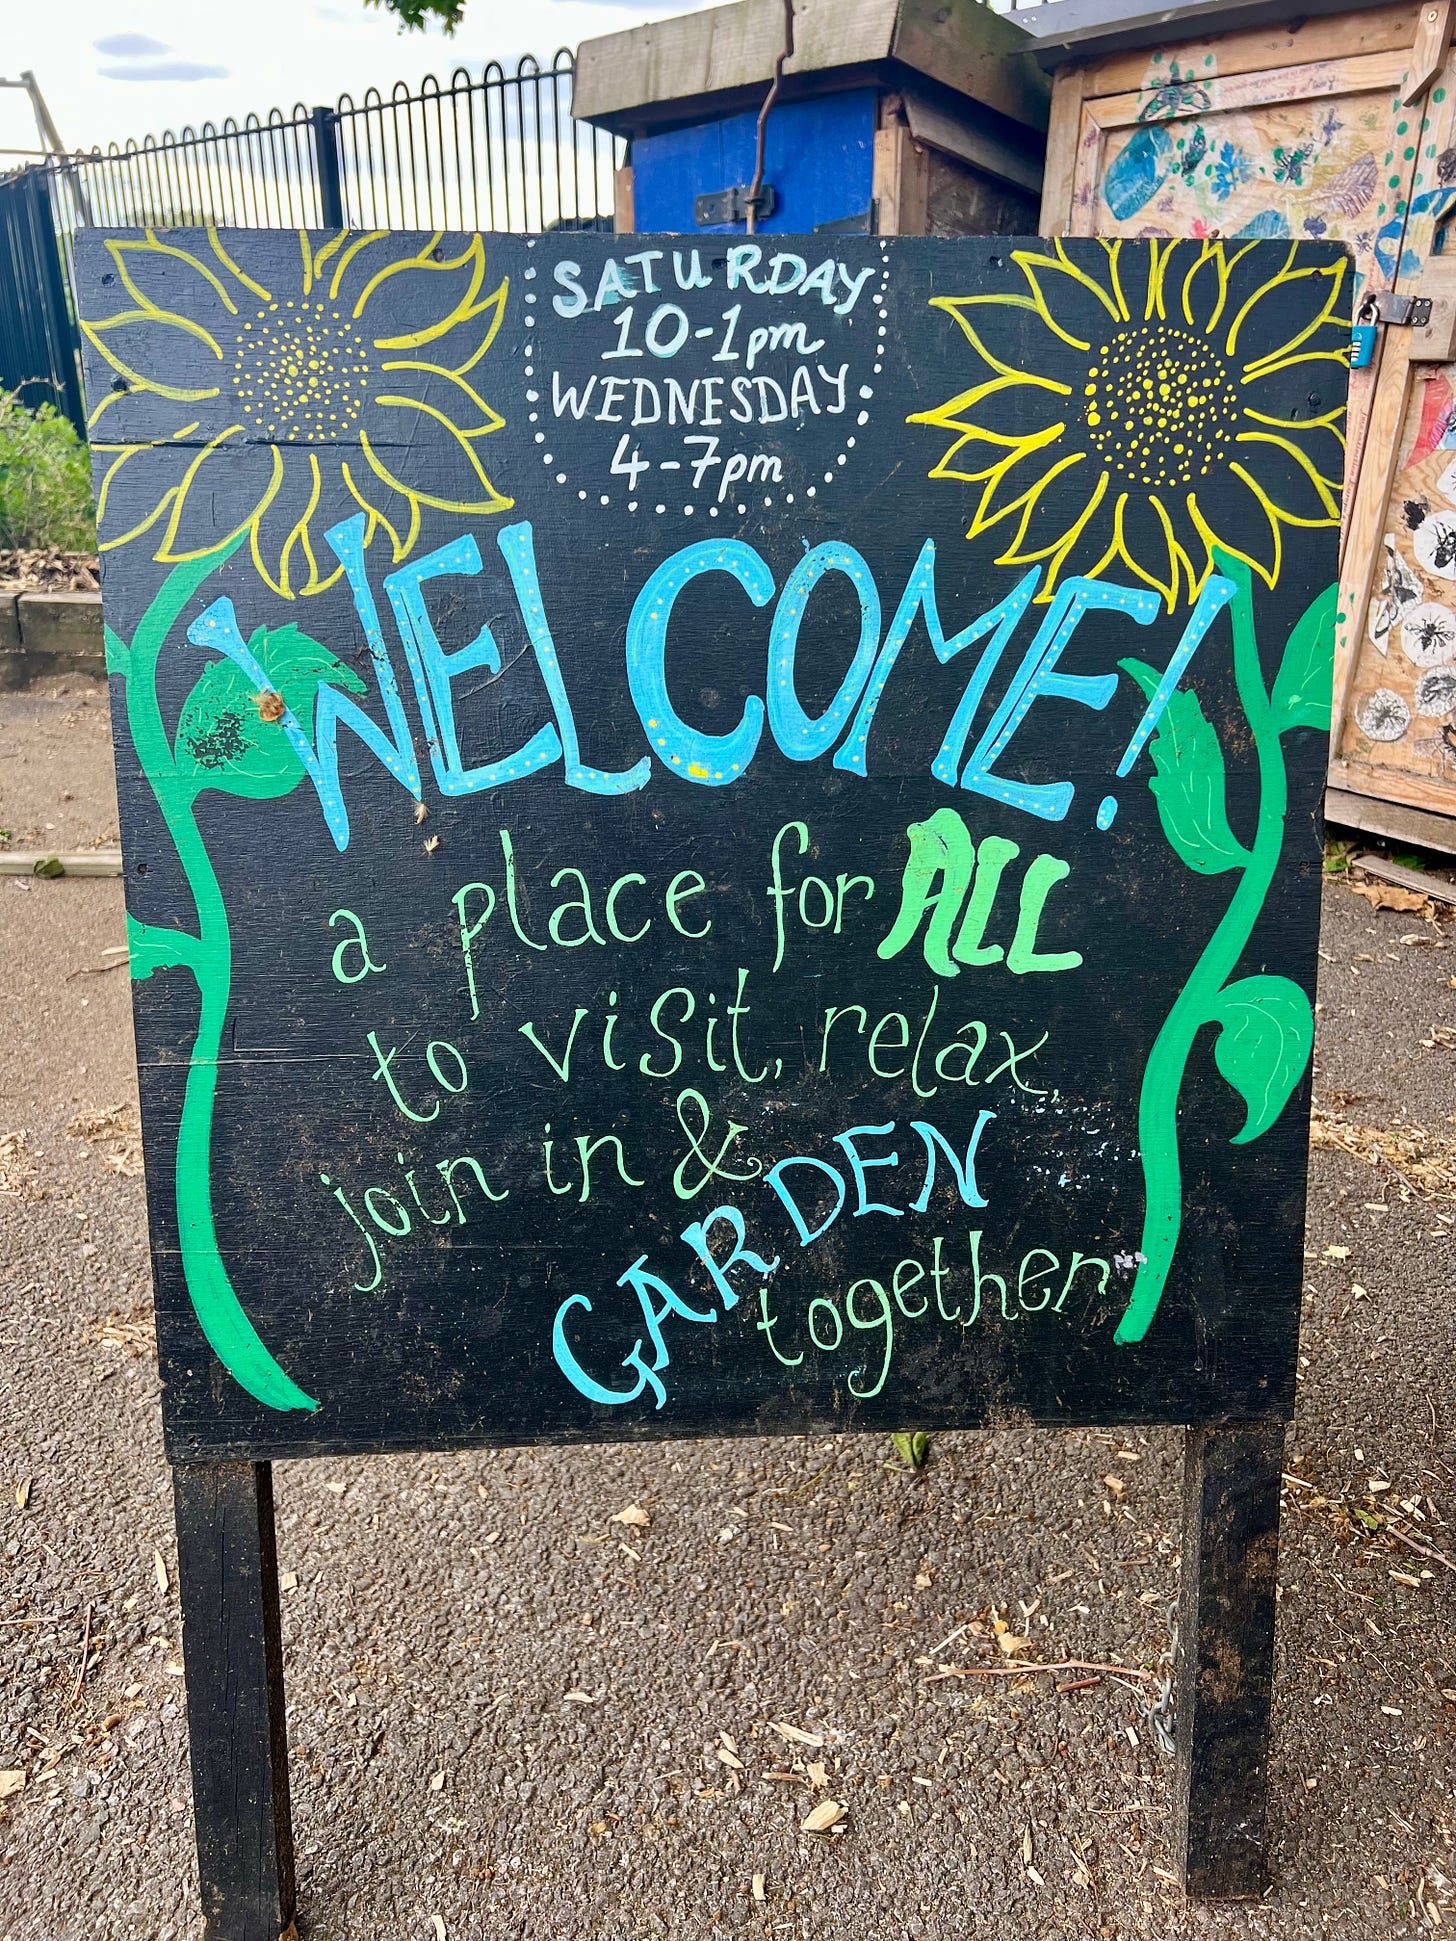 SATURDAY
10-1pm
WEDNESDAY
4-7pm
WELCOME!
a place for ALL
to visit, relax,
join in &
GARDEN
together